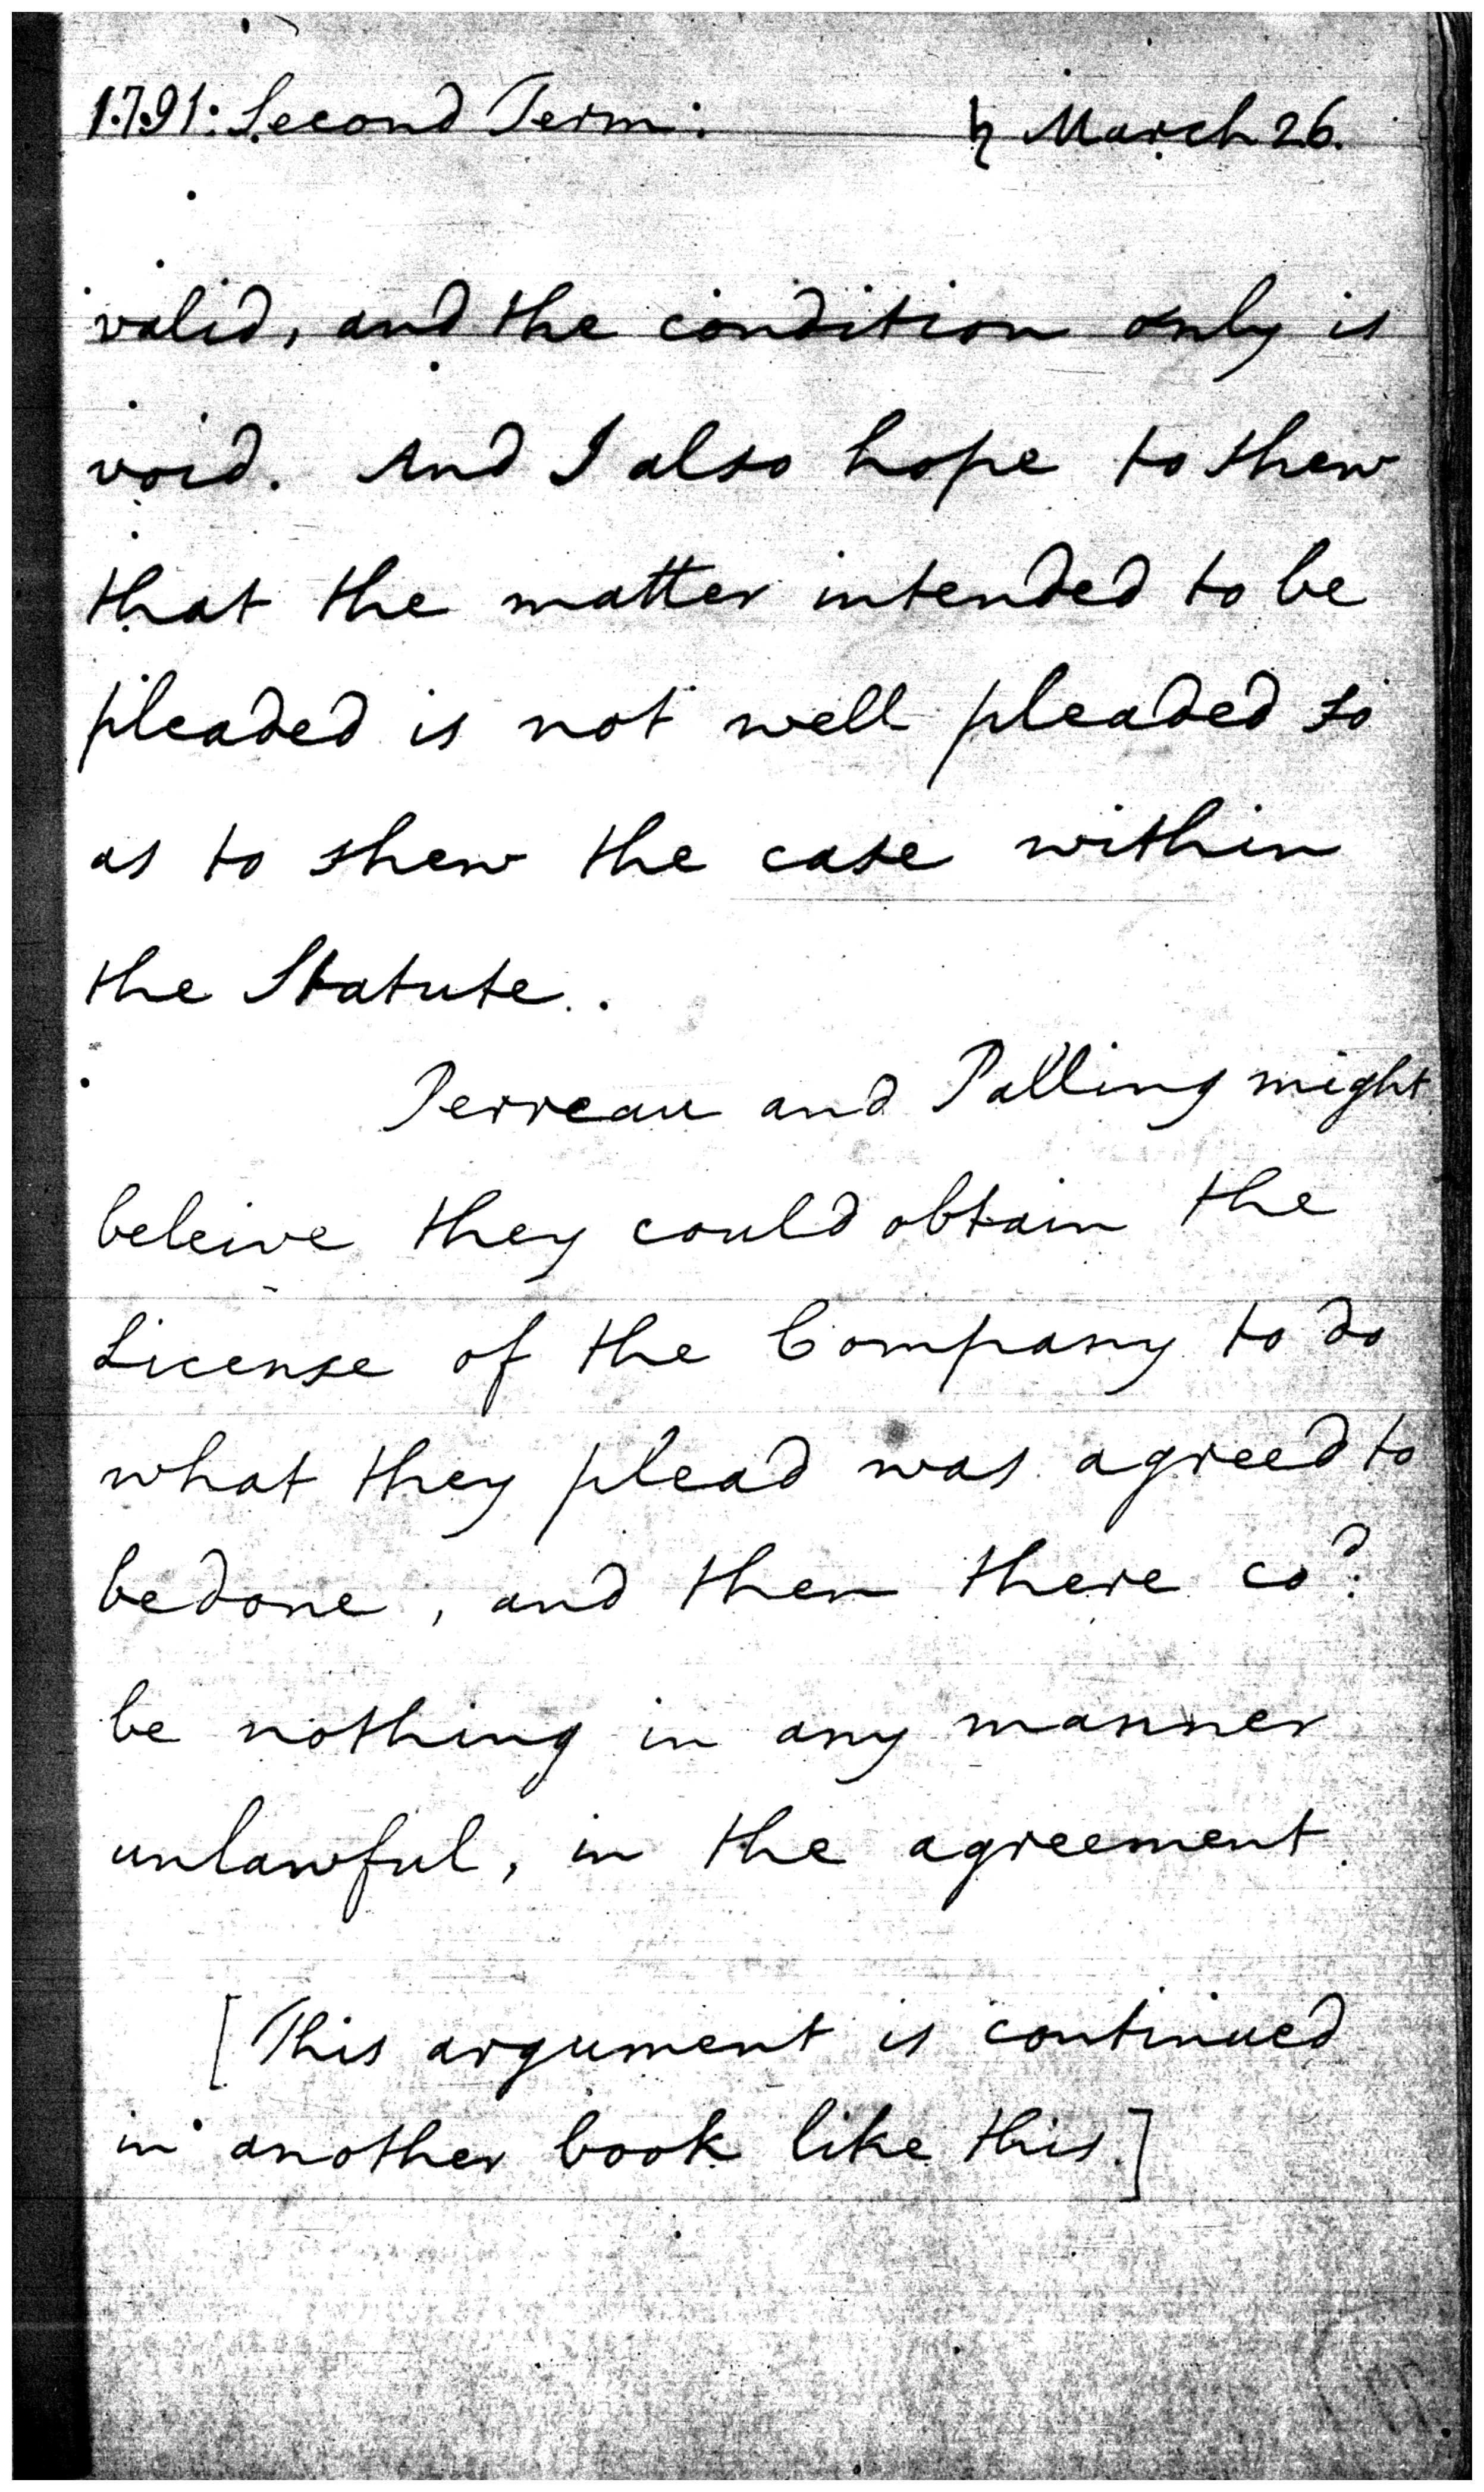 1791: Second Term. ♄ March 26.
valid, and the condition only is
void. And I also hope to shew
that the matter intended to be
pleaded is not well pleaded so
as to shew the case within
the Statute.
Perreau and Palling might
beleive they could obtain the
License of the Company to do
what they plead was agreed to
be done, and then there co.d
be nothing in any manner
unlawful, in the agreement.
[This argument is continued
in another book like this.]